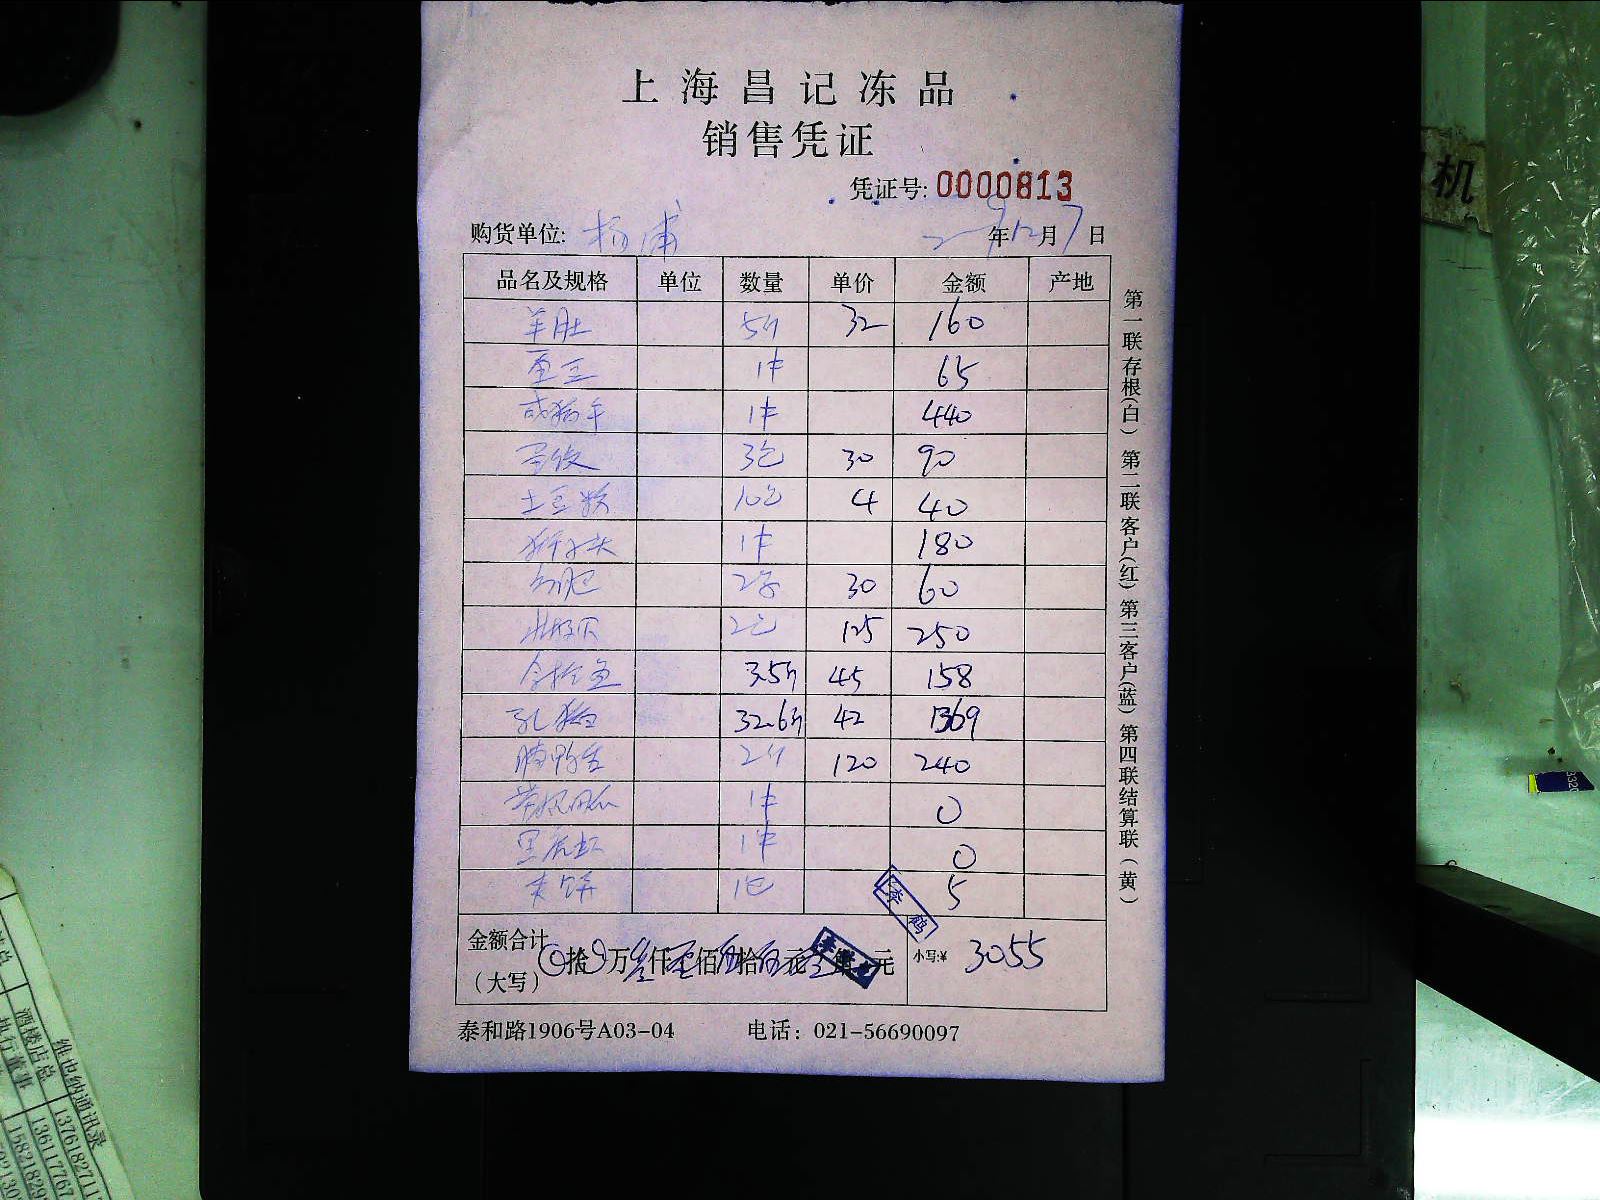 上海昌记冻品
销售凭证
凭证号: 0000813
购货单位: 杨浦 年12月7日
品名及规格 单位 数量 单价 金额 产地
羊肚 5斤 32 160
1件 65
1件 440
3包 30 90
土豆 10包 4 40
狮子头 1件 180
30 60
北极贝 2包 125 250
3.5斤 45 158
乳猪 32.6斤 42 1369
腊鸭 2斤 120 240
1件 0
黑虎虾 1件 0
夹饼 1包 5
金额合计
(大写) 拾 万 叁仟 零佰 伍拾 伍元 元 小写:¥ 3055
李鹤
泰和路1906号A03-04 电话: 021-56690097
第一联存根(白) 第二联客户(红) 第三客户(蓝) 第四联结算联(黄)
机
维也纳通讯录
酒楼店总
执行董事